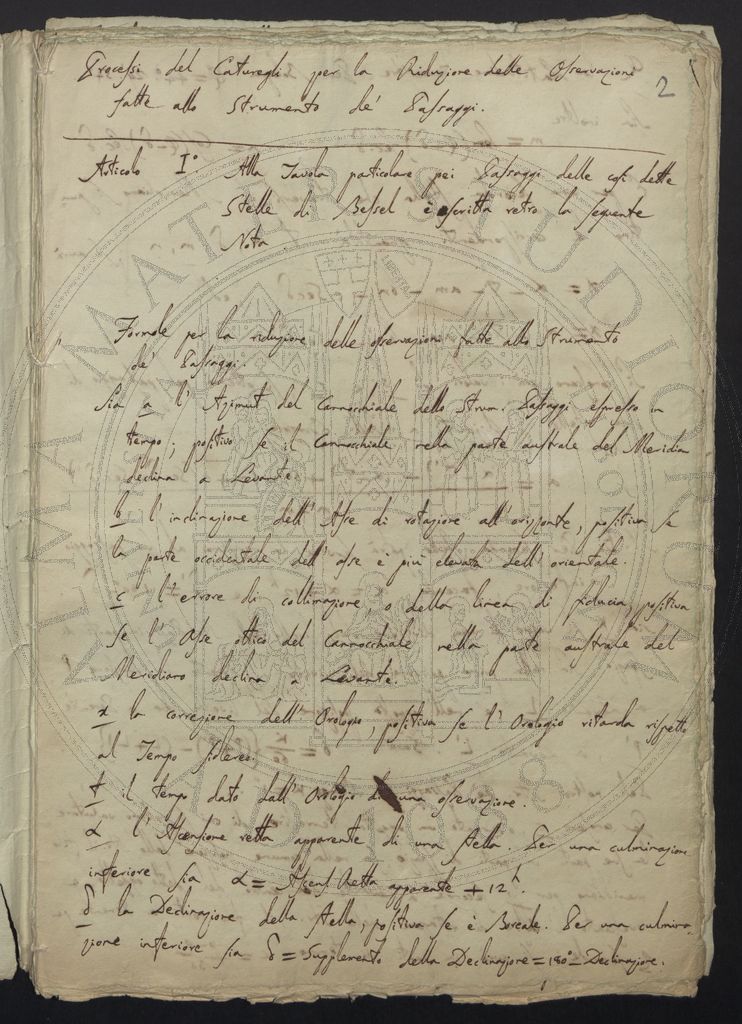 Processi del Caturegli per la Riduzione delle Osservazioni
fatte allo Strumento de' Passaggi.
2
Articolo I° Alla Tavola particolare pei Passaggi delle così dette
Stelle di Bessel è scritta retro la seguente
Nota.
Formole per la riduzione delle osservazioni fatte allo Strumento
de' Passaggi.
Sia a l'Azimut del Cannocchiale dello Strum. Passaggi espresso in
tempo; positivo se il Cannocchiale nella parte australe del Meridia
declina a Levante.
b l'inclinazione dell'Asse di rotazione all'orizzonte, positiva se
la parte occidentale dell'asse è più elevata dell'orientale.
c l'errore di collimazione, o della linea di fiducia, positiva
se l'Asse ottico del Cannocchiale nella parte australe del
Meridiano declina a Levante.
x la correzione dell'Orologio, positiva se l'Orologio ritarda rispetto
al Tempo sidereo.
t il tempo dato dall'Orologio di una osservazione.
α l'Ascensione retta apparente di una stella. Per una culminazione
inferiore sia α = Ascens. Retta apparente + 12h.
δ la Declinazione della stella, positiva se è Boreale. Per una culmina-
zione inferiore sia δ = Supplemento della Declinazione = 180° - Declinazione.
ALMA MATER STUDIORUM
A.D. 1088
LIBERTAS